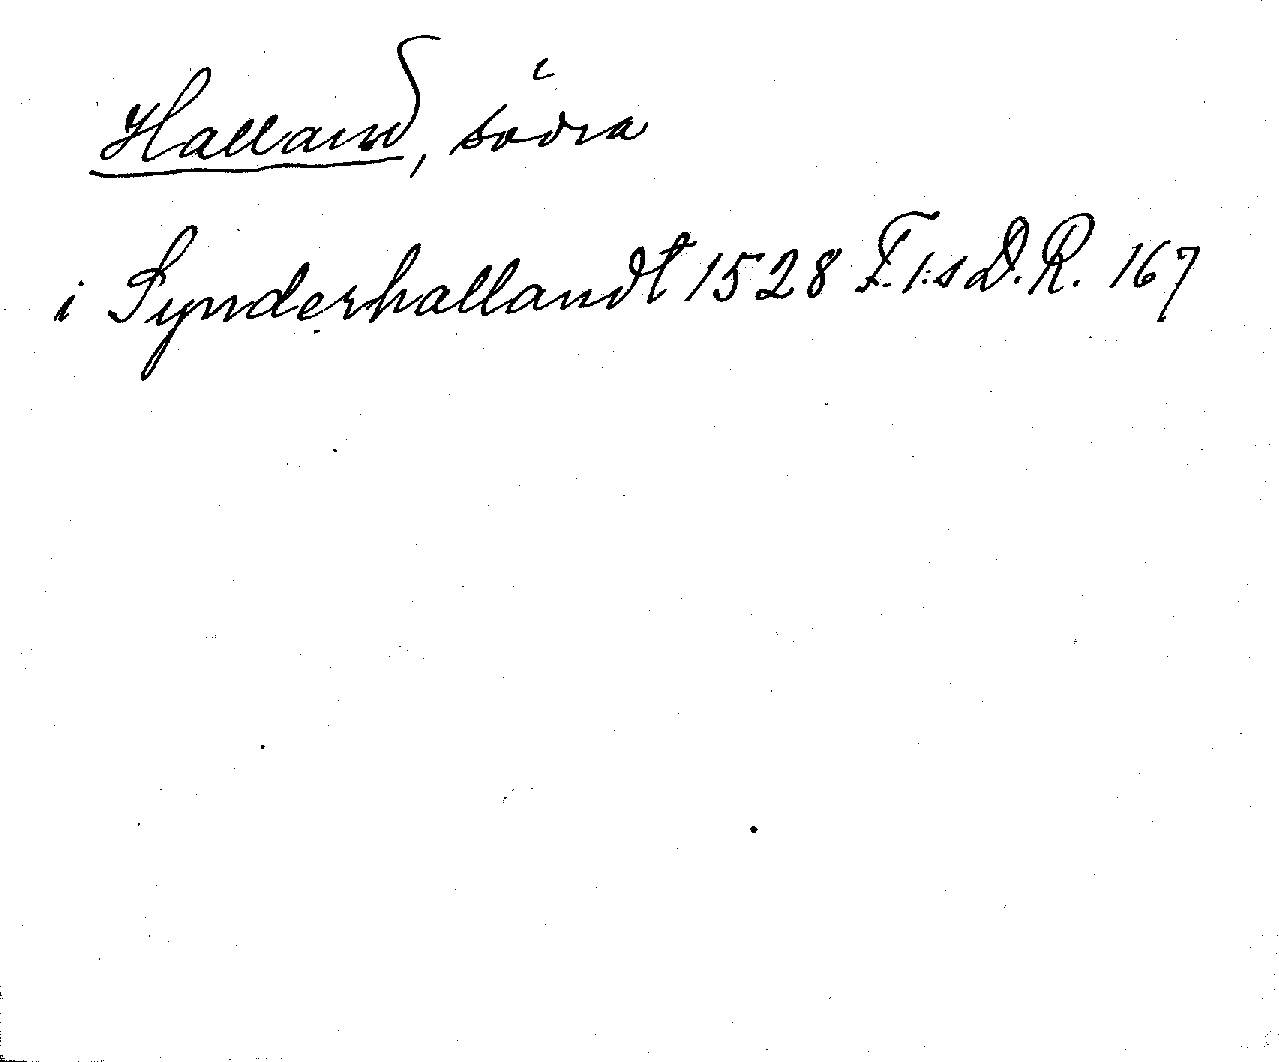 Halland, södra
i Synderhallandt 1528 F. I:s D. R. 167